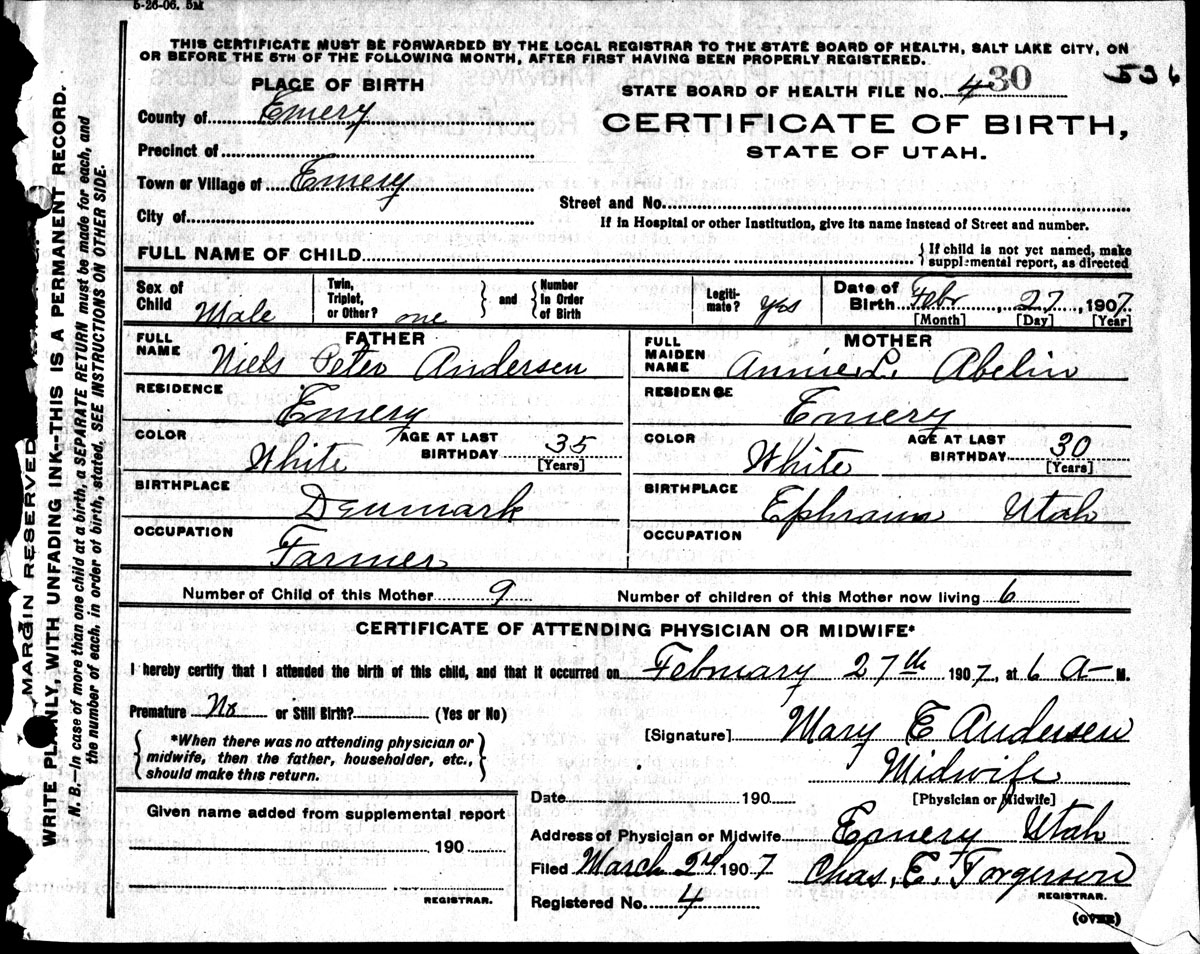 5-26-06. 5M
THIS CERTIFICATE MUST BE FORWARDED BY THE LOCAL REGISTRAR TO THE STATE BOARD OF HEALTH, SALT LAKE CITY, ON
OR BEFORE THE 5TH OF THE FOLLOWING MONTH, AFTER FIRST HAVING BEEN PROPERLY REGISTERED.
536
PLACE OF BIRTH
STATE BOARD OF HEALTH FILE No. 430
County of Emery
CERTIFICATE OF BIRTH,
Precinct of
STATE OF UTAH.
Town or Village of Emery
Street and No.
City of
If in Hospital or other Institution, give its name instead of Street and number.
FULL NAME OF CHILD
If child is not yet named, make
supplemental report, as directed
Sex of Child Male
Twin, Triplet, or Other? one
and
Number In Order of Birth
Legiti-mate? yes
Date of Birth Febr 27, 1907.
[Month] [Day] [Year]
FATHER
FULL NAME Niels Peter Andersen
MOTHER
FULL MAIDEN NAME Annie L. Abelin
RESIDENCE Emery
RESIDENCE Emery
COLOR White
AGE AT LAST BIRTHDAY 35 [Years]
COLOR White
AGE AT LAST BIRTHDAY 30 [Years]
BIRTHPLACE Denmark
BIRTHPLACE Ephraim Utah
OCCUPATION Farmer
OCCUPATION
Number of Child of this Mother 9
Number of children of this Mother now living 6
CERTIFICATE OF ATTENDING PHYSICIAN OR MIDWIFE*
I hereby certify that I attended the birth of this child, and that it occurred on February 27th 1907, at 6 A- M.
Premature No or Still Birth? (Yes or No)
*When there was no attending physician or
midwife, then the father, householder, etc.,
should make this return.
[Signature] Mary E Andersen
Midwife
Date 190
[Physician or Midwife]
Given name added from supplemental report
190
REGISTRAR.
Address of Physician or Midwife Emery Utah
Filed March 2nd 1907 Chas. E. Torgerson
REGISTRAR.
Registered No. 4
(OVER)
MARGIN RESERVED
WRITE PLAINLY WITH UNFADING INK--THIS IS A PERMANENT RECORD.
N. B.—In case of more than one child at a birth, a SEPARATE RETURN must be made for each, and
the number of each, in order of birth, stated. SEE INSTRUCTIONS ON OTHER SIDE.